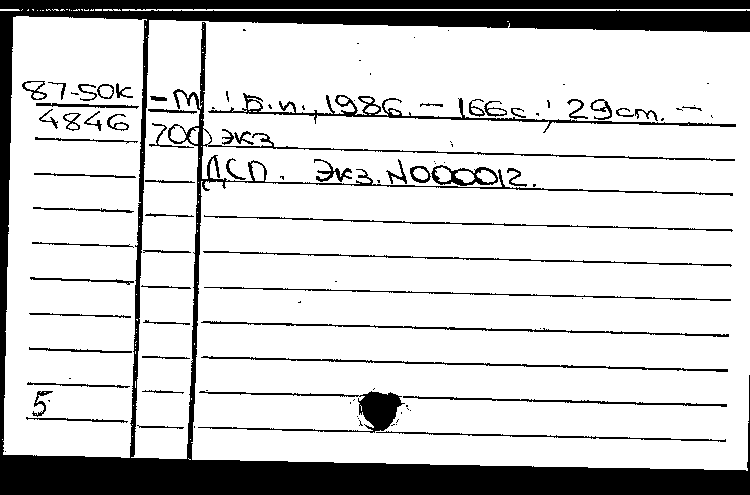 87-50к
4846
- М.: Б.и., 1986. - 166с.; 29см. -
700 экз
ДСП. Экз. N000012.
5